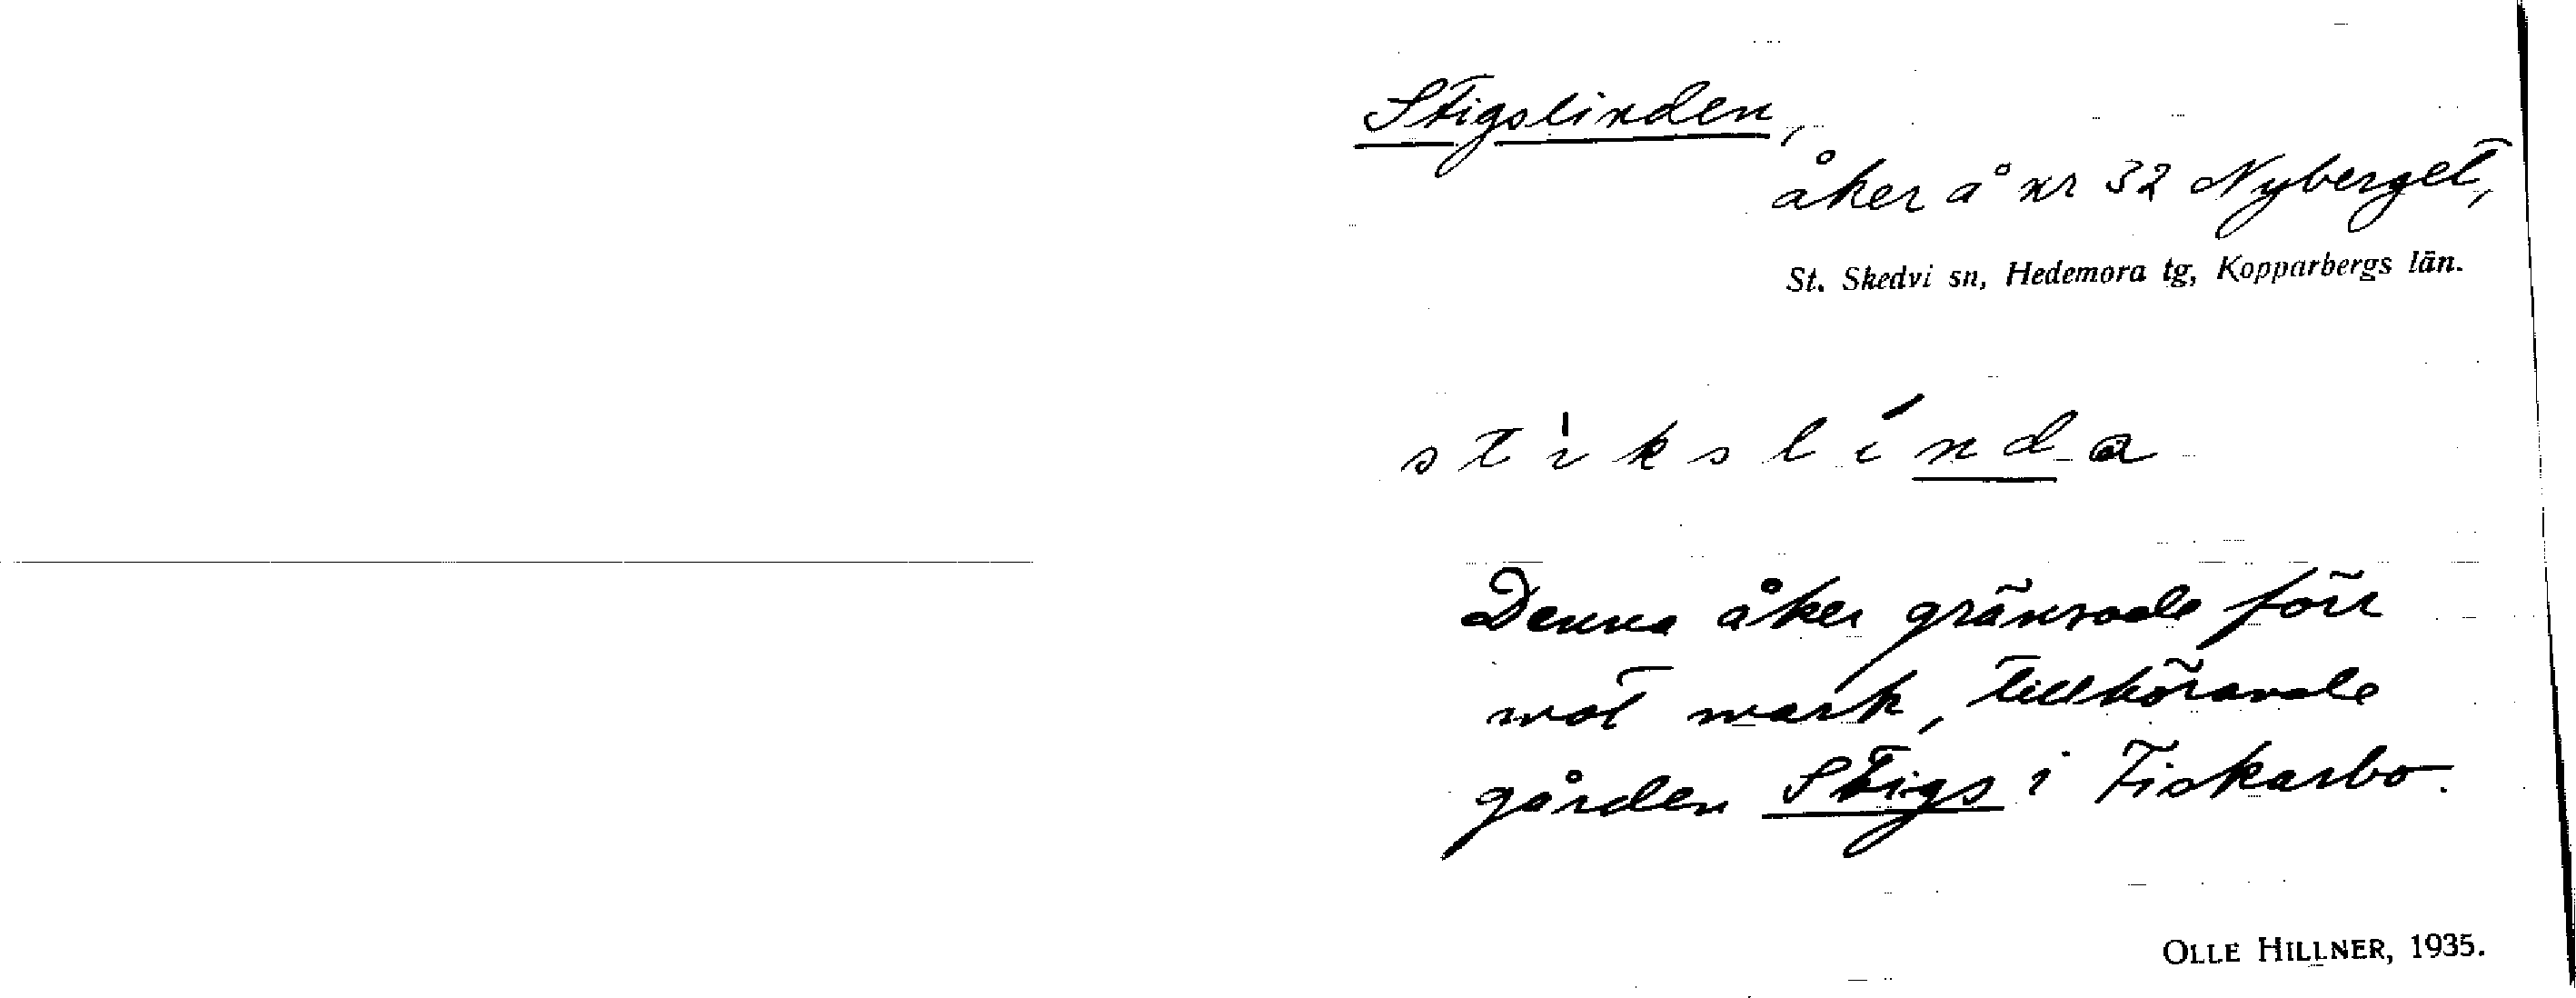 Stigslinden,
åker å nr 32 Nyberget,
St. Skedvi sn, Hedemora tg, Kopparbergs län.
stı̀kslı́nda
Denna åker gränsade förr
mot mark, tillhörande
gården Stigs i Fiskarbo.
OLLE HILLNER, 1935.